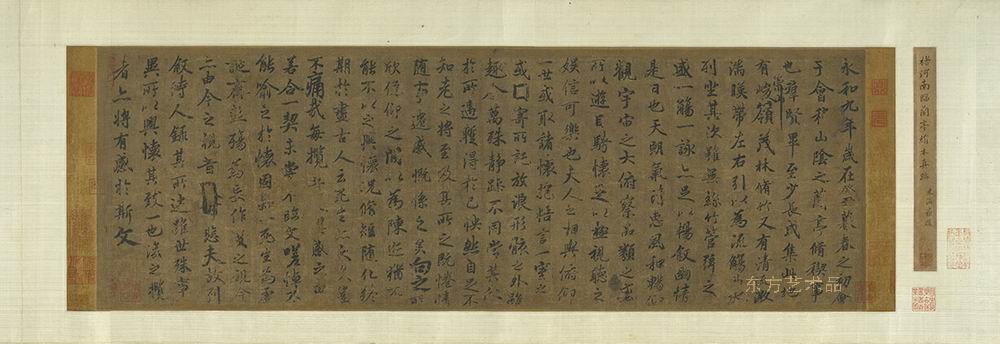 永和九年歲在癸丑暮春之初會
于會稽山陰之蘭亭脩稧事
也群賢畢至少長咸集此地
有峻領茂林脩竹又有清流激
湍暎帶左右引以為流觴曲水
列坐其次雖無絲竹管弦之
盛一觴一詠亦足以暢敘幽情
是日也天朗氣清惠風和暢仰
觀宇宙之大俯察品類之盛
所以遊目騁懷足以極視聽之
娛信可樂也夫人之相與俯仰
一世或取諸懷抱悟言一室之
或寄所託放浪形骸之外雖
趣舍萬殊靜躁不同當其欣
於所遇暫得於己怏然自足不
知老之將至及其所之既惓情
隨事遷感慨係之矣向之所
欣俛仰之間以為陳迹猶不
能不以之興懷況脩短隨化終
期於盡古人云死生亦大矣豈
不痛哉每攬昔人興感之由
若合一契未嘗不臨文嗟悼不
能喻之於懷固知一死生為虛
誕齊彭殤為妄作後之視今
亦由今之視昔悲夫故列
敘時人錄其所述雖世殊事
異所以興懷其致一也後之攬
者亦將有感於斯文
褚河南臨蘭亭絹本真跡
东方艺术品